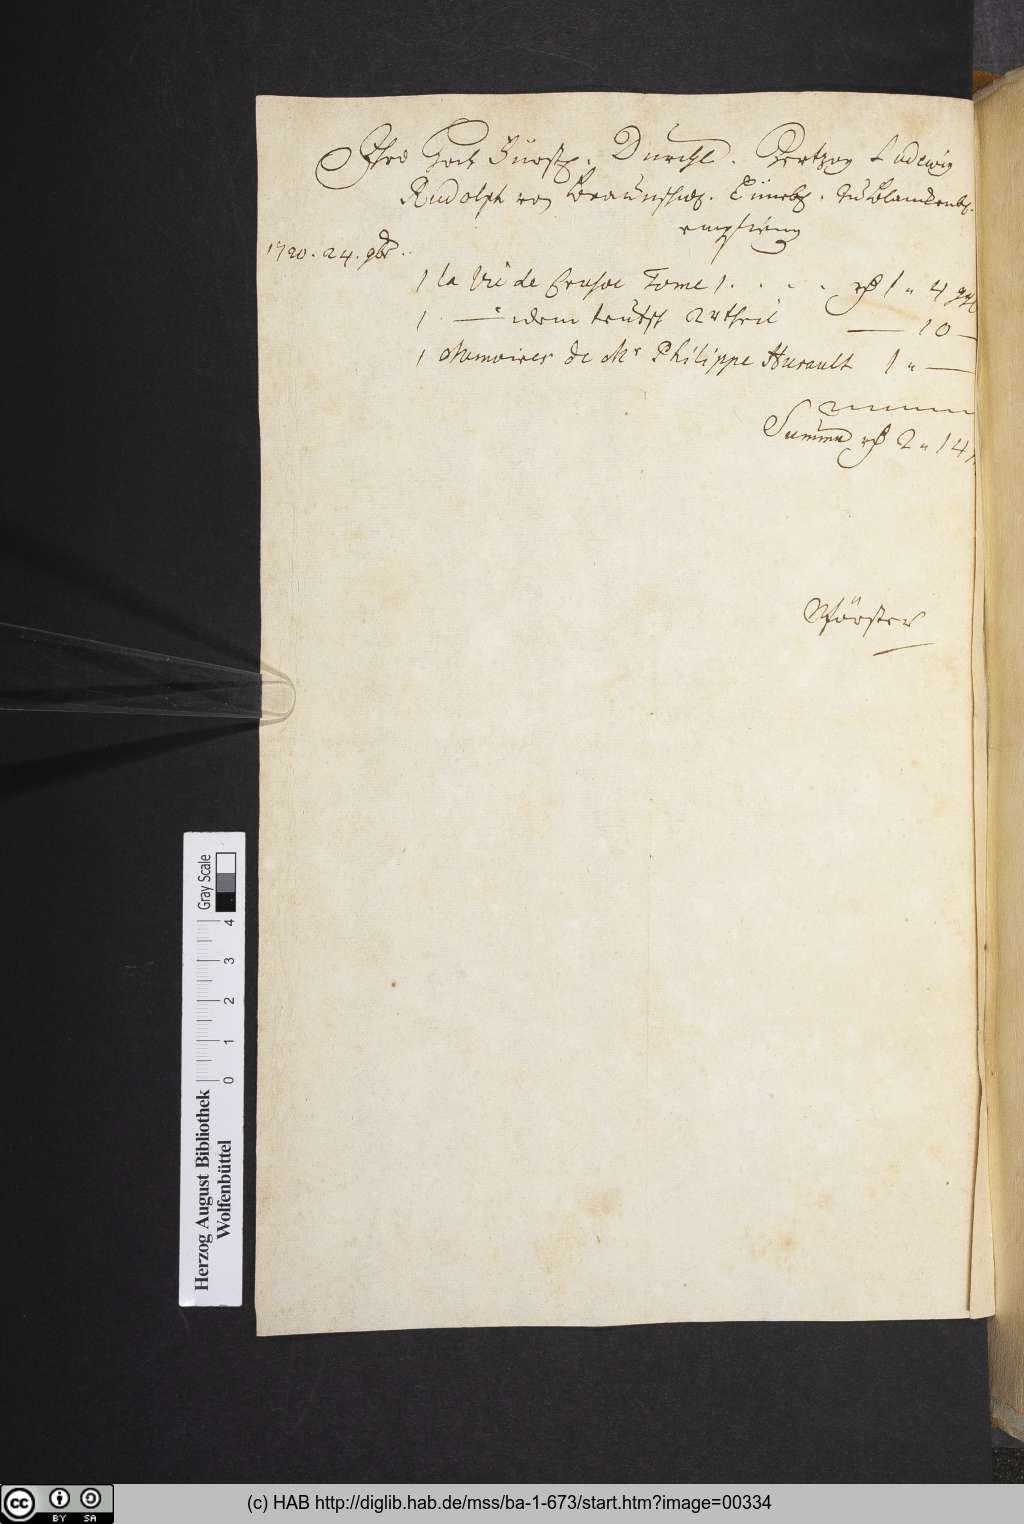 Ihro Hoch Fürstl. Durchl. Hertzog Ludewig
Rudolph von Braunschw. Lüneb. zu Blanckenb.
empfieng
1720. 24. 9br.
1 la Vie de Crusoe Tome 1 . . . . rth 1 " 4 ggl
1 — idem teutsch 2r theil — 10 —
1 Memoires de Mr Philippe Hurault 1 " —
Summa rth 2 " 14
Förster
Gray Scale
0 1 2 3 4
Herzog August Bibliothek
Wolfenbüttel
cc BY SA
(c) HAB http://diglib.hab.de/mss/ba-1-673/start.htm?image=00334